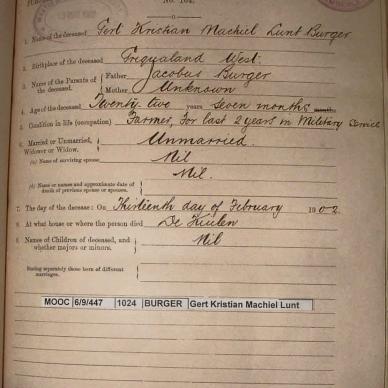 No. 162.
1. Name of the deceased Gert Kristian Machiel Lunt Burger
2. Birthplace of the deceased Griqualand West.
3. Names of the Parents of the deceased. Father Jacobus Burger
Mother Unknown
4. Age of the deceased Twenty two years Seven months
5. Condition in life (occupation) Farmer, For last 2 years in Military Service
6. Married or Unmarried, Widower or Widow. Unmarried.
(a) Name of surviving spouse Nil
Nil.
(b) Name or names and approximate date of death of previous spouse or spouses.
7. The day of the decease: On Thirteenth day of February 1902
8. At what house or where the person died De Kuilen
9. Names of Children of deceased, and whether majors or minors. Nil
Stating separately those born of different marriages.
MOOC 6/9/447 1024 BURGER Gert Kristian Machiel Lunt